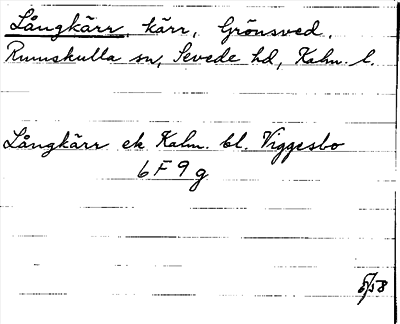 Långkärr, kärr, Grönsved,
Rumskulla sn, Sevede hd, Kalm. l.
Långkärr ek Kalm. bl. Viggesbo
6 F 9 g
5/58